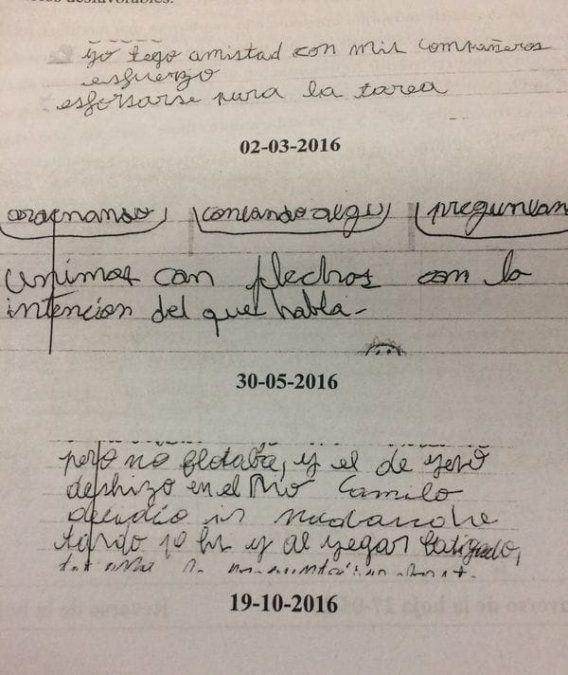 desfavorables.
yo tego amistad con mis compañeros
esfuerzo
esforsarse para la tarea
02-03-2016
contando algo
unimos con flechas con la
intencion del que habla-
30-05-2016
pero no flotaba, y el de yeso
deshizo en el Camilo
decidio ir
tardo 10 hs y al yegar fatigado,
19-10-2016